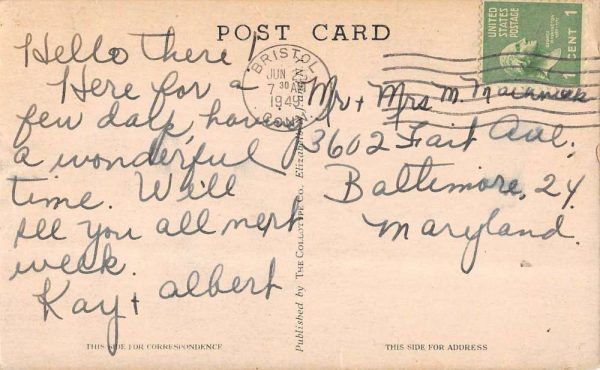 POST CARD
Hello there!
Here for a
few days, having
a wonderful
time. Will
see you all next
week.
Kay + Albert
THIS SIDE FOR CORRESPONDENCE
Published by THE COLLOTYPE CO. Elizabeth,
BRISTOL
JUN
7 30 AM
1949
CONN.
UNITED
STATES
POSTAGE
1 CENT 1
Mr + Mrs. M.
3602 Fait Ave.
Baltimore, 24
Maryland.
THIS SIDE FOR ADDRESS